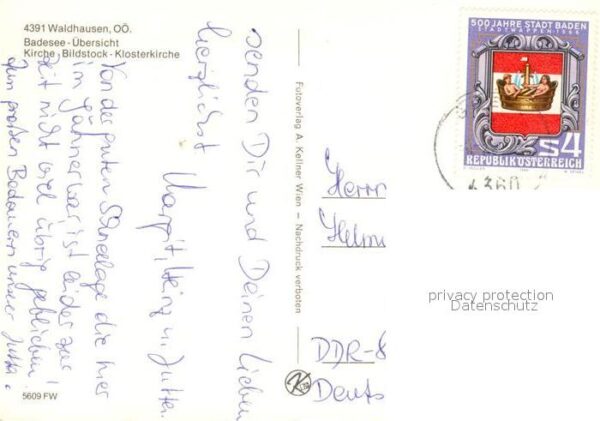 4391 Waldhausen, OÖ.
Badesee - Übersicht
Kirche - Bildstock - Klosterkirche
senden Dir und Deinen Lieben
herzlichst
Margit, Heinz u. Jutta.
Von der guten Schneelage die hier
im Jänner war, ist leider zur
Zeit nicht viel übrig geblieben!
Zum großen Bedauern unser Jutta!
5609 FW
Fotoverlag A. Kellner Wien — Nachdruck verboten
500 JAHRE STADT BADEN
STADTWAPPEN 1566
S4
REPUBLIK ÖSTERREICH
4360
Herrn
Helmu
DDR-8
Deuts
privacy protection
Datenschutz